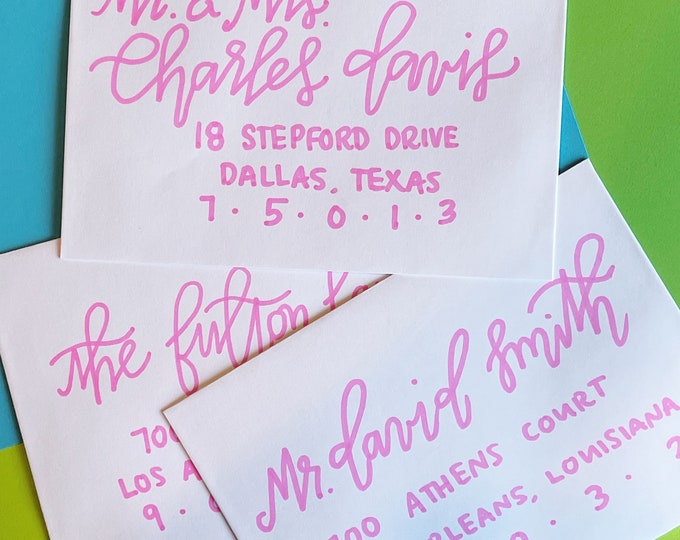 Mr. & Mrs.
Charles Davis
18 STEPFORD DRIVE
DALLAS, TEXAS
7 · 5 · 0 · 1 · 3
the fulton
700
LOS A
9 · 0
Mr. david Smith
700 ATHENS COURT
RLEANS, LOUISIANA
0 · 3 · 2